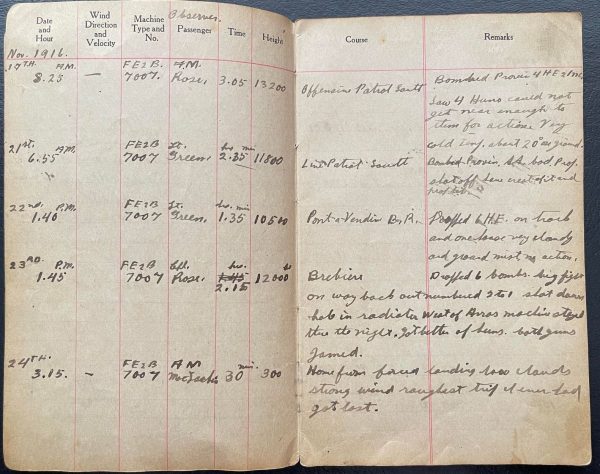 Date and Hour
Wind Direction and Velocity
Machine Type and No.
Observer.
Passenger
Time
Height
Course
Remarks
Nov. 1916.
17TH. A.M. FE2B. A.M.
8.25 — 7007. Rose, 3.05 13200 Offensive Patrol South Bombed Provin 4 HE 2
Saw 4 Huns could not
get near enough to
them for action. Very
cold Eng. about 20° as ground.
21st. A.M. FE2B Lt. hrs min
6.55 7007 Green. 2.35 11800 Line Patrol South Bombed Provin. bad. Prop.
shot off. and
22nd. P.M. FE2B Lt. hrs. min
1.40 7007 Green. 1.35 10500 Pont-a-Vendin Dropped 6 H.E. on track
and one house very cloudy
and ground mist no action.
23RD. P.M. FE2B Cpl. hrs.
1.45 7007 Rose. 1.45 12000 Brebiere Dropped 6 bombs. big fight
2.15
on way back out numbered 2 to 1 shot down
hole in radiator West of Arras machine stayed
there the night. Got better of huns. both guns
jamed.
24TH. FE2B A.M. min.
3.15. — 7007 30 300 Home from forced landing low clouds
strong wind roughest trip I ever had
got lost.